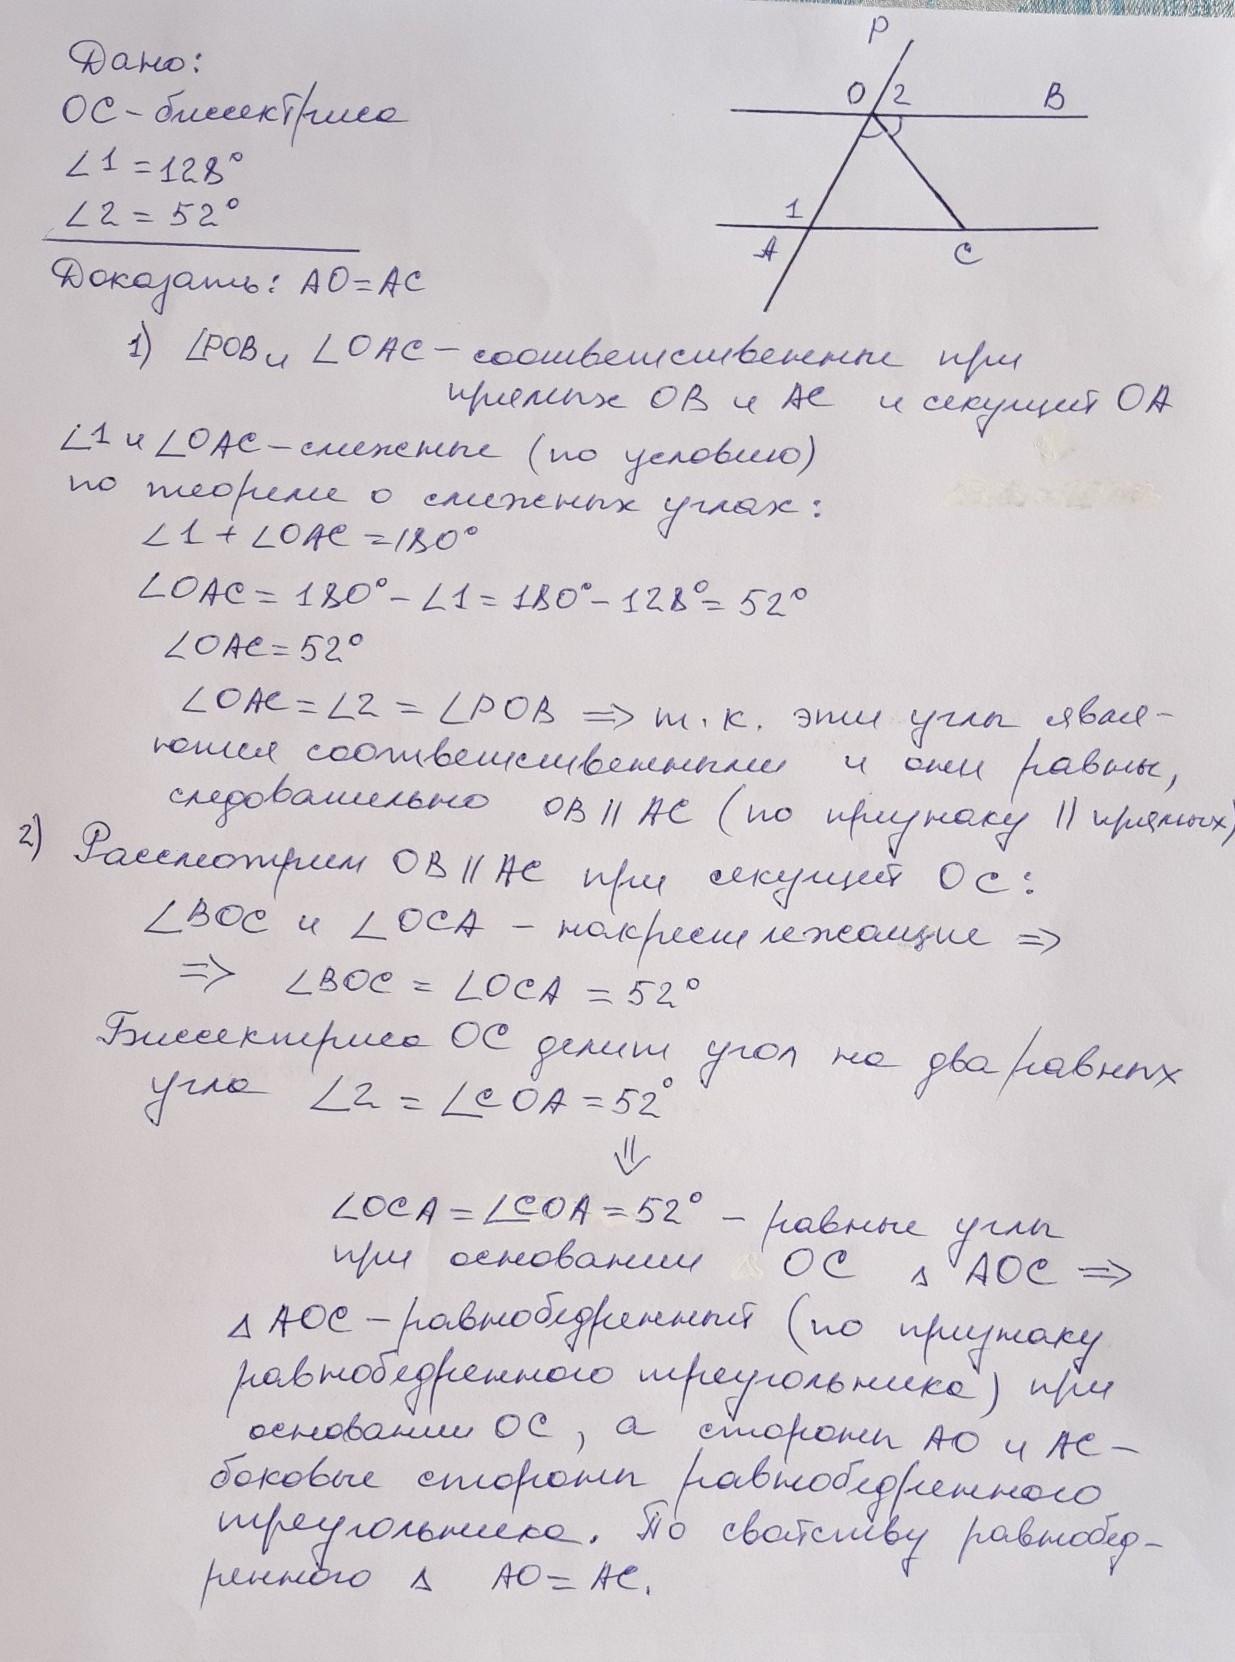 Дано:
ОС - биссектриса
∠1 = 128°
∠2 = 52°
Доказать: АО = АС
P
O 2 B
1
A C
1) ∠РОВ и ∠ОАС - соответственные при
прямых ОВ и АС и секущей ОА
∠1 и ∠ОАС - смежные (по условию)
по теореме о смежных углах:
∠1 + ∠ОАС = 180°
∠ОАС = 180° - ∠1 = 180° - 128° = 52°
∠ОАС = 52°
∠ОАС = ∠2 = ∠РОВ => т.к. эти углы явля-
ются соответственными и они равны,
следовательно ОВ || АС (по признаку || прямых)
2) Рассмотрим ОВ || АС при секущей ОС:
∠ВОС и ∠ОСА - накрест лежащие =>
=> ∠ВОС = ∠ОСА = 52°
Биссектриса ОС делит угол на два равных
угла ∠2 = ∠СОА = 52°
⇓
∠ОСА = ∠СОА = 52° - равные углы
при основании ОС △ АОС =>
△ АОС - равнобедренный (по признаку
равнобедренного треугольника) при
основании ОС, а стороны АО и АС -
боковые стороны равнобедренного
треугольника. По свойству равнобед-
ренного △ АО = АС.